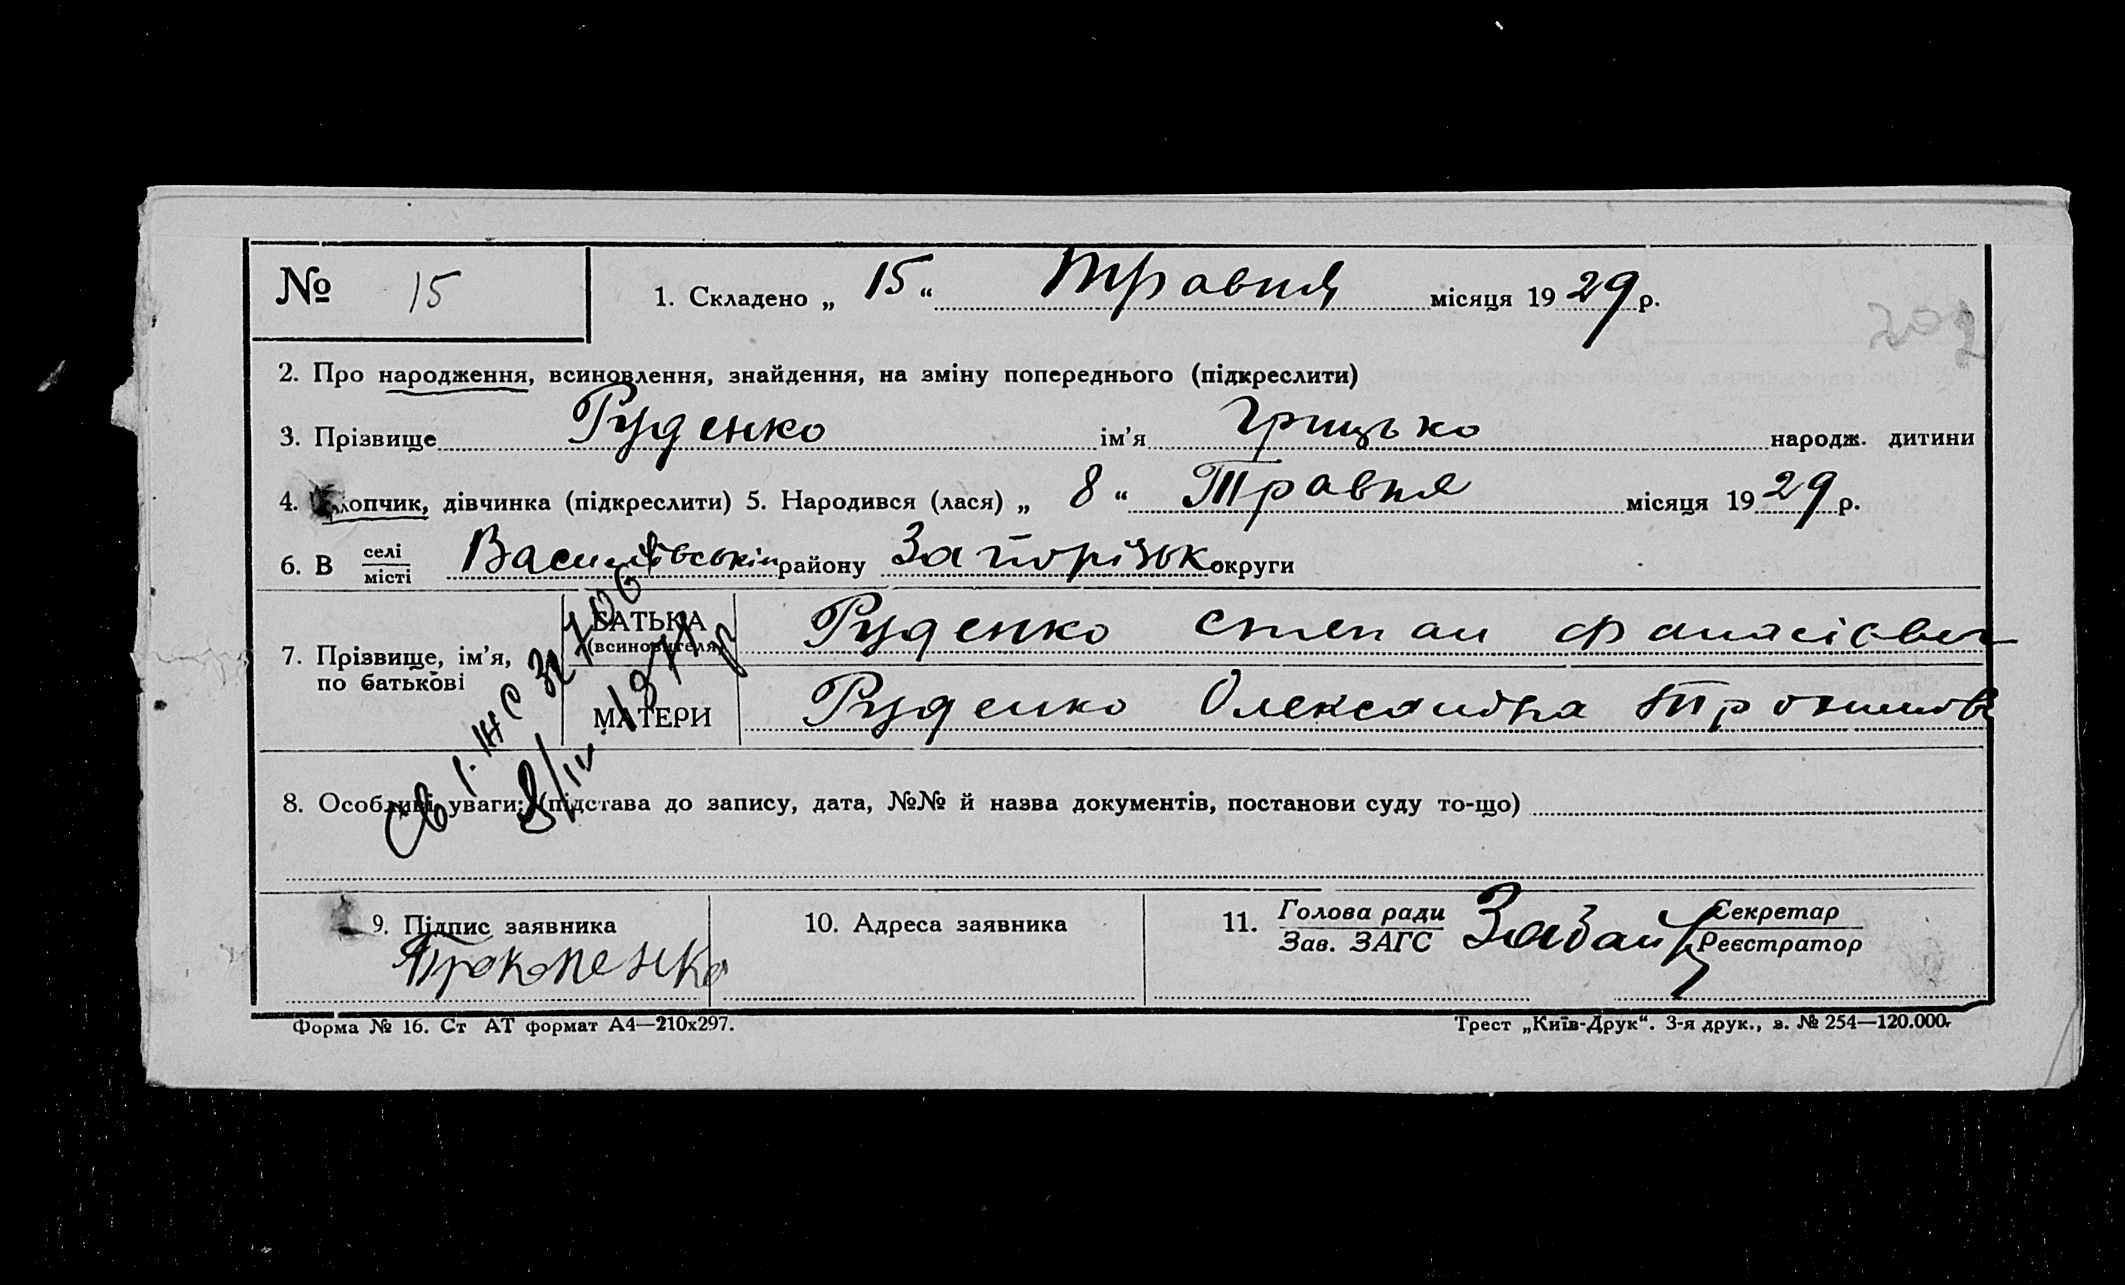 № 15
1. Складено „ 15 “ Травня місяця 1929 р.
202
2. Про народження, всиновлення, знайдення, на зміну попереднього (підкреслити)
3. Прізвище Руденко ім’я Грицько народж. дитини
4. Хлопчик, дівчинка (підкреслити) 5. Народився (лася) „ 8 “ Травня місяця 1929 р.
6. В селі
місті
Василівськім району Запорізьк округи
7. Прізвище, ім’я,
по батькові
БАТЬКА
(всиновителя)
Руденко Степан
МАТЕРИ
Руденко Олександра
8. Особливі уваги: (підстава до запису, дата, №№ й назва документів, постанови суду то-що)
9. Підпис заявника
Прокопенко
10. Адреса заявника
11. Голова ради
Зав. ЗАГС
Секретар
Реєстратор
Форма № 16. Ст АТ формат А4—210x297.
Трест „Київ-Друк“. 3-я друк., з. № 254—120.000.